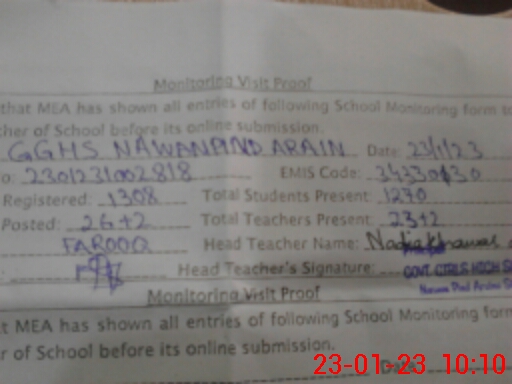 Monitoring Visit Proof
that MEA has shown all entries of following School Monitoring form to
cher of School before its online submission.
GGHS NAWANPIND ARAIN Date: 23/1/23
o: 2301231002818 EMIS Code: 34330130
Registered: 1308 Total Students Present: 1270
Posted: 26+2 Total Teachers Present: 23+2
FAROOQ Head Teacher Name: Nadia Khawar
Head Teacher's Signature:
GOVT. GIRLS HIGH S
Monitoring Visit Proof
at MEA has shown all entries of following School Monitoring form
er of School before its online submission.
Date:
23-01-23 10:10